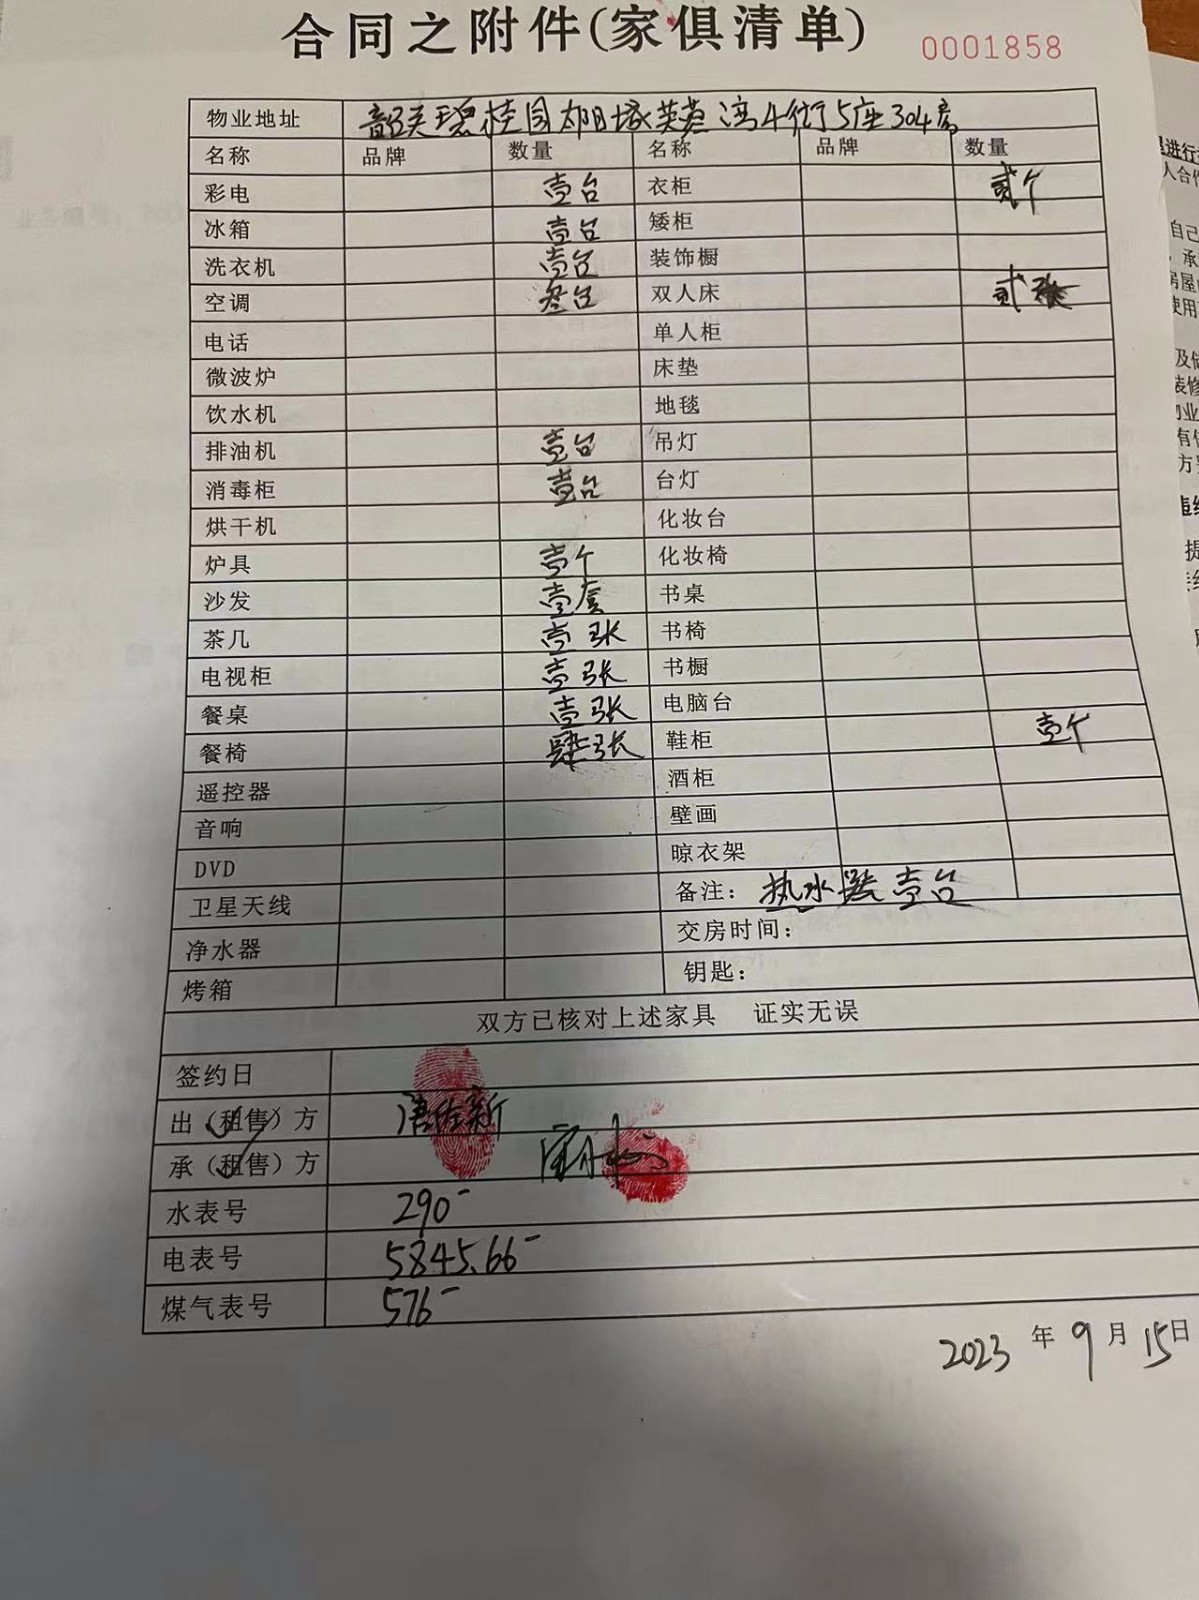 合同之附件(家俱清单) 0001858
物业地址 韶关碧桂园太阳城芙蓉湾4街5座304房
名称 品牌 数量 名称 品牌 数量
彩电 壹台 衣柜 贰个
冰箱 壹台 矮柜
洗衣机 壹台 装饰橱
空调 叁台 双人床 贰张
电话 单人柜
微波炉 床垫
饮水机 地毯
排油机 壹台 吊灯
消毒柜 壹台 台灯
烘干机 化妆台
炉具 壹个 化妆椅
沙发 壹套 书桌
茶几 壹张 书椅
电视柜 壹张 书橱
餐桌 壹张 电脑台
餐椅 肆张 鞋柜 壹个
遥控器 酒柜
音响 壁画
DVD 晾衣架
卫星天线 备注: 热水器壹台
净水器 交房时间:
烤箱 钥匙:
双方已核对上述家具 证实无误
签约日
出(租售)方
承(租售)方
水表号 290-
电表号 5845.66-
煤气表号 576-
2023 年 9 月 15 日